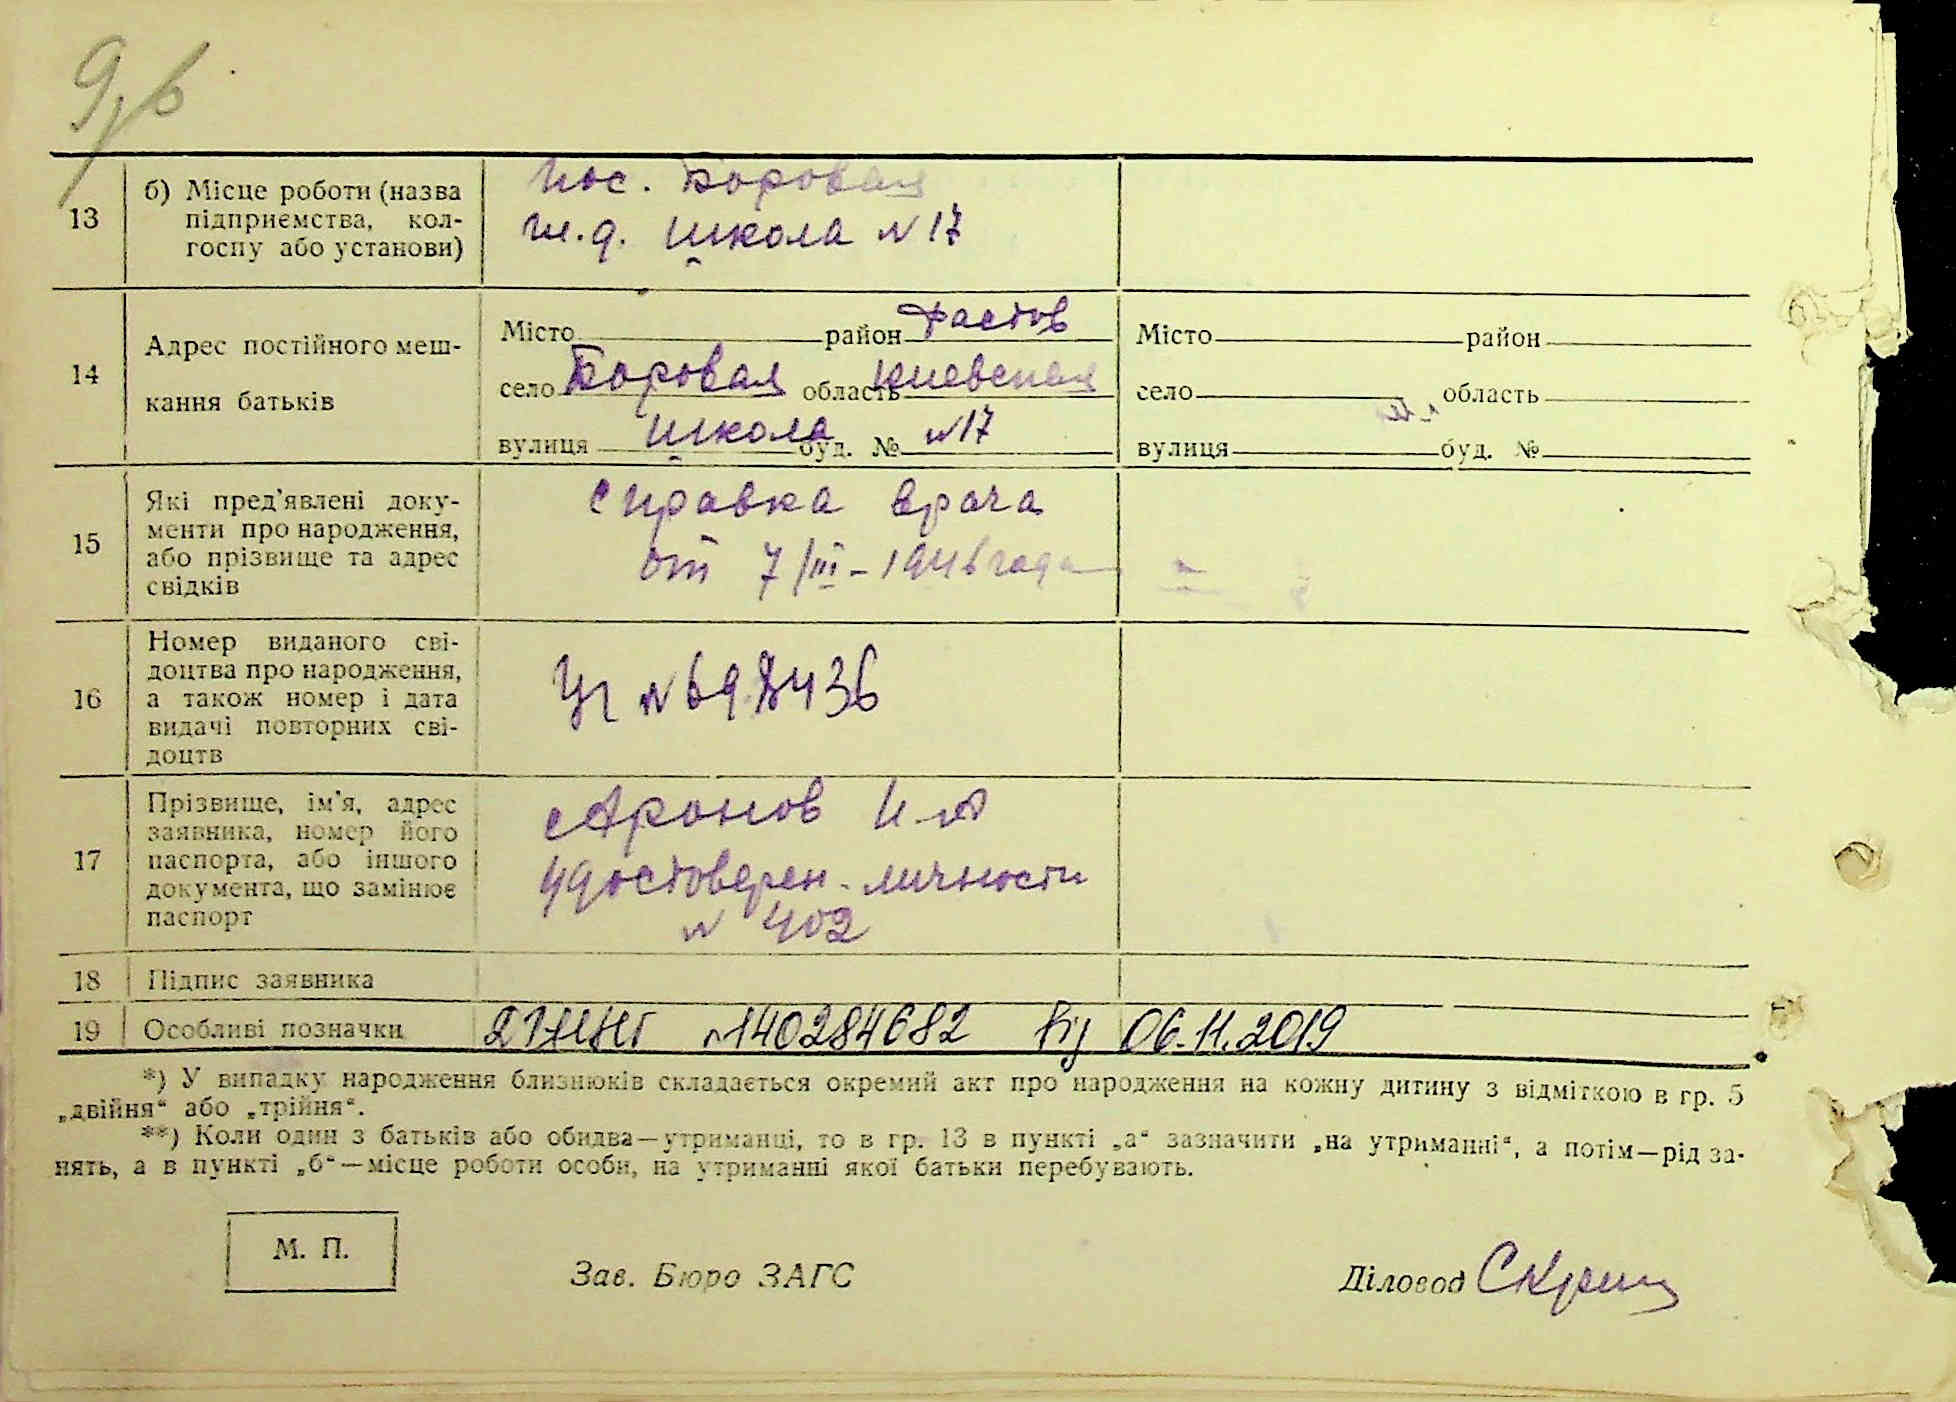 13
б) Місце роботи (назва
підприємства, кол-
госпу або установи)
пос. Боровая
ж.д. школа №17
14
Адрес постійного меш-
кання батьків
Місто район Фастов
село Боровая область Киевская
вулиця школа буд. № №17
Місто район
село область
вулиця буд. №
15
Які пред'явлені доку-
менти про народження,
або прізвище та адрес
свідків
справка врача
от 7/III-1946 года
16
Номер виданого сві-
доцтва про народження,
а також номер і дата
видачі повторних сві-
доцтв
№698436
17
Прізвище, ім'я, адрес
заявника, номер його
паспорта, або іншого
документа, що замінює
паспорт
Аронов И.А
удостоверен. личности
№ 402
18
Підпис заявника
19
Особливі позначки
№140284682 від 06.11.2019
*) У випадку народження близнюків складається окремий акт про народження на кожну дитину з відміткою в гр. 5
„двійня“ або „трійня“.
**) Коли один з батьків або обидва—утриманці, то в гр. 13 в пункті „а“ зазначити „на утриманні“, а потім—рід за-
нять, а в пункті „б“—місце роботи особи, на утриманні якої батьки перебувають.
М. П.
Зав. Бюро ЗАГС
Діловод